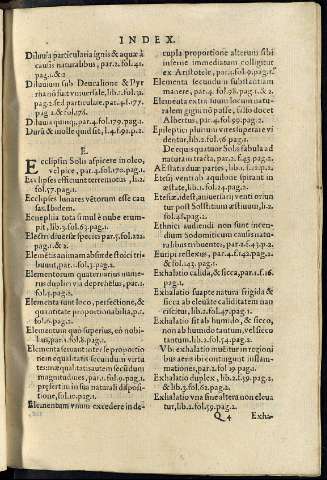 INDEX.
Diluuia particularia ignis & aquæ à
causis naturalibus, par.2.fol.42.
pag.1.&2
Diluuium sub Deucalione & Pyr
rha nõ fuit vniuersale, lib.2.fol.31
pag.2.sed particulare, par.4.f.177.
pag 2.& fol.178.
Diluuia quinq;, par.4.fol.179.pag.2.
Dura & molle quid sit, l.4.f.92.p.2.
E.
Eclipsin Solis aspicere in oleo,
vel pice, par.4.fol.170.pag.1.
Ecclipses efficiunt terremotus, li.2
fol.57.pag.1.
Ecclipses lunares vẽtorum esse cau
sas. Ibidem.
Ecnephia tota simul è nube erum-
pit, lib.3.fol.63.pag.1.
Electri diuersæ species par.5.fol.222.
pag.1.& 2.
Elemẽtis animam absurde stoici tri
buunt, par.1.fol.3.pag.2.
Elementorum quaternarius nume-
rus duplici via deprehensus, par.1.
fol.3.pag.2.
Elementa sunt loco, perfectione, &
quantitate proportionabilia, p.1.
fol.8.pag.2.
Elementum quò superius, eò nobi-
lius, par.1.fol.8.pag.1.
Elementa seruant inter se proportio
nem æqualitatis secundum virtu-
tes: inæqualitatis autem secundum
magnitudines, par.1.fol.9.pag.1.
præsertim in sua naturali disposi-
tione, fol.10.pag.1.
Elementum vnum excedere in de-
cupla proportione alterum sibi
inferiꝰ immediatum colligitur
ex Aristotele, par.1.fol.9.pag.1.
Elementa secundum substantiam
manere, par.4.fol.98.pag.1.& 2.
Elementa extra suum locum natu-
ralem gigni nõ posse, fallo docet
Albertus, par.4.fol.99.pag.2.
Epileptici plurium vires superare vi
dentur, lib.2.fol.60.pag.2.
De equis quatuor Solis fabula ad
naturam tracta, par.2.f.43.pag.2.
Æstatis duæ partes, lib.2.f.52.pag.2.
Etesij venti ab aquilone spirant in
æstate, lib.2.fol.24.pag.2.
Etesiæ, desẽt, annuersarij venti oriun
tur post Solstitium æstiuum, li.2.
fol.48.pag.2.
Ethnici audiendi non sunt inten-
dium Sodomiticum causis natu-
ralibus tribuentes, par.2.f.43.p.2.
Euripi reflexus, par.4.f.142.pag.2.
& fol.143.pag.1.
Exhalatio calida, & sicca, par.2.f.16.
pag.1.
Exhalatio suapte natura frigida &
sicca ab eleuãte caliditatem nan
ciscitur, lib.2.fol.47.pag.1.
Exhalatio fit ab humido, & sicco,
non ab humido tantum, vel sicco
tantum, lib.2.fol.13.pag.2.
Vbi exhalatio nutritur in regioni
bus aeris ibi contingunt inflam-
mationes, par.2.fol.19.pag.1.
Exhalatio duplex, lib.2.f.39.pag.2.
& lib.3.fol.62.pag.2.
Exhalatio vna sine altera non eleua
tur, lib.2.fol.39.pag.2.
Q 4 Exha-